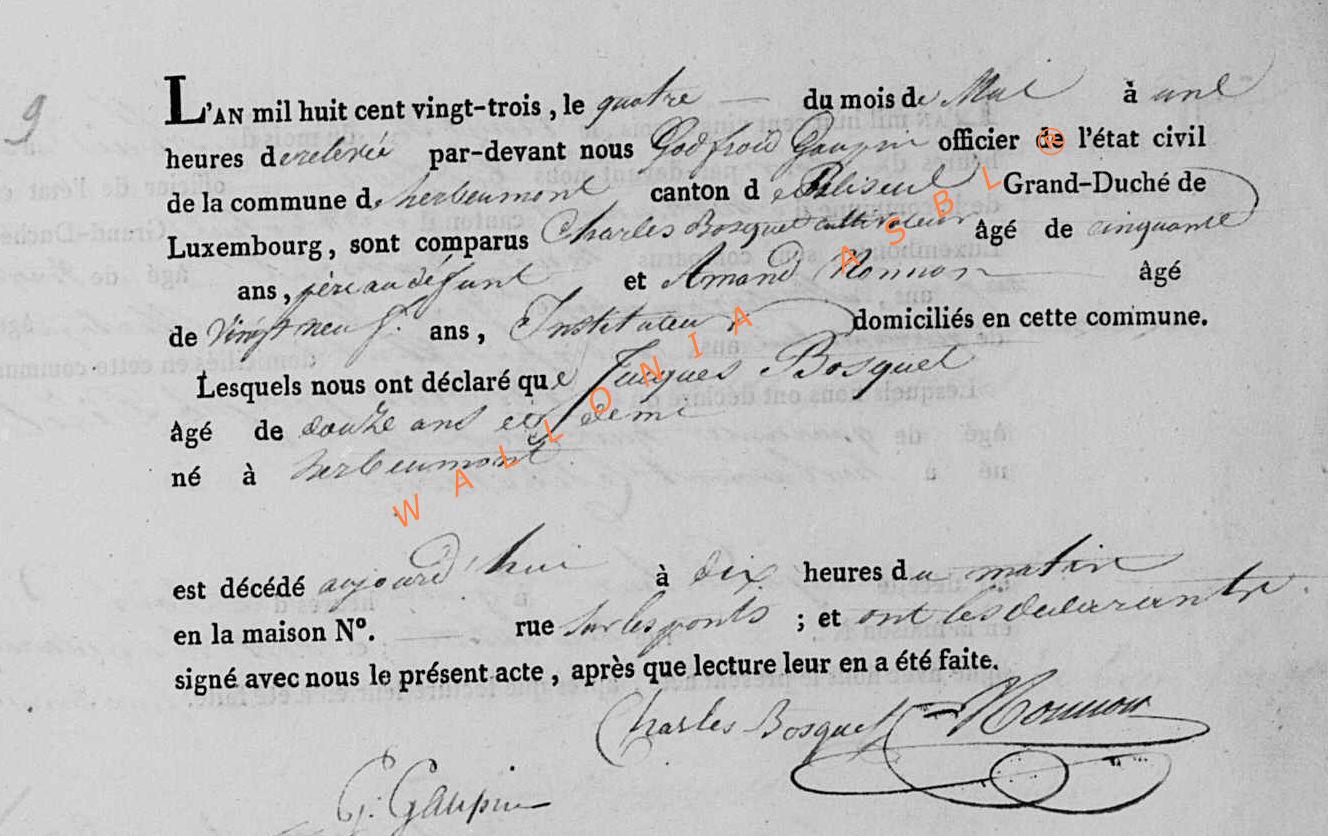 9
L'AN mil huit cent vingt-trois, le quatre — du mois de Mai à une
heures de relevée par-devant nous Godfroid Gaupin officier de l'état civil
de la commune d. herbeumont canton de Paliseul Grand-Duché de
Luxembourg, sont comparus Charles Bosquet cultivateur âgé de cinquante
ans, père au défunt et Amand Nonnon âgé
de vingt neuf ans, Instituteur domiciliés en cette commune.
Lesquels nous ont déclaré que Jacques Bosquet
âgé de douze ans et demi
né à herbeumont
est décédé aujourd'hui à dix heures du matin
en la maison N°. — rue sur les ponts ; et ont les déclarants
signé avec nous le présent acte, après que lecture leur en a été faite.
Charles Bosquet Nonnon
G. Gaupin
WALLONIA ASBL ®